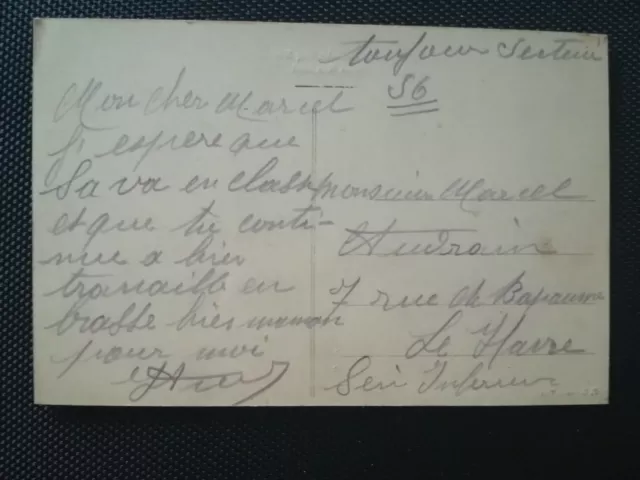 toujour Secteur
56
Mon cher Marcel
J'espere que
sa va en classe
et que tu conti-
nue a bien
travaille
brasse bien maman
pour moi
Monsieur Marcel
Audrain
7 rue de Bapaume
Le Havre
Seri Inferieur